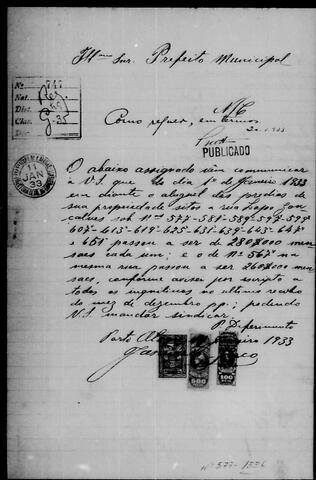 Illmo Snr. Prefeito Municipal
Nº 717
11
JAN
33
Como requer, em termos
PUBLICADO
O abaixo assignado vem communicar
a V.S. que do dia 1º de Janeiro 1933
em diante o aluguel dos predios de
sua propriedade sitos a rua
sob Nos 577-581-589-595
607-613-619-625-631-639-643-647
e 651 passou a ser de 230$000 men
saes cada um; e o de Nº 567 na
mesma rua passou a ser 260$000 men
saes, conforme avisou por escripto a
todos os inquilinos no ultimo recibo
do mez de dezembro pp.; podendo
V.S. mandar sindicar.
P. Deferimento
Porto 1933
500
100
Nº 577-1336